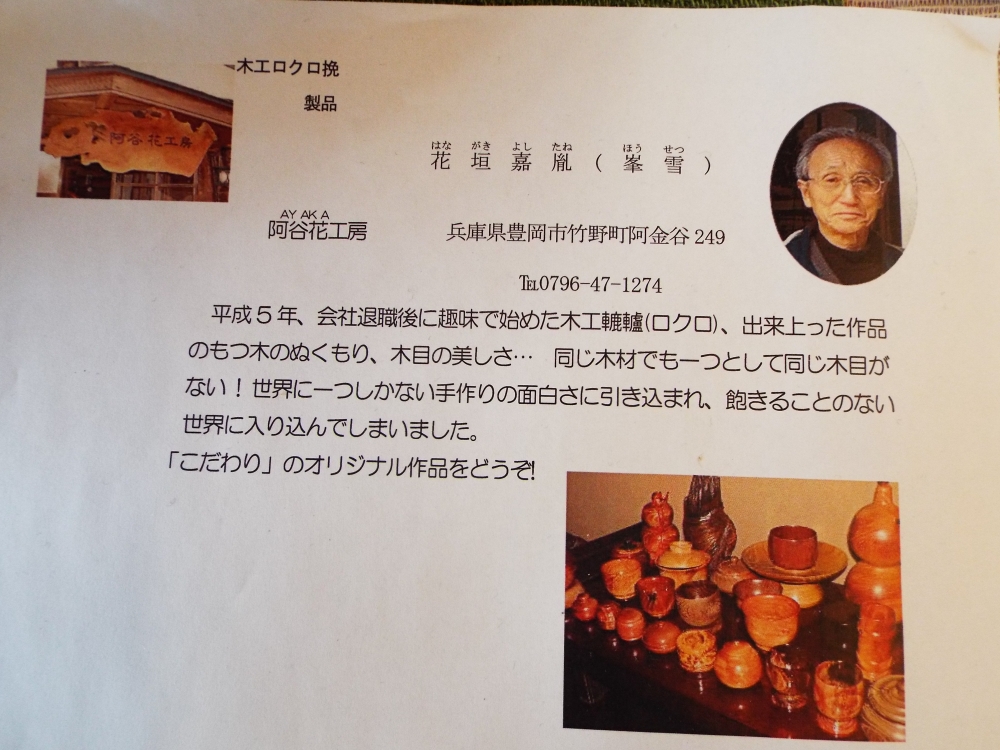 木工ロクロ挽
製品
阿谷花工房
はな がき よし たね ほう せつ
花 垣 嘉 胤 ( 峯 雪 )
AYAKA
阿谷花工房 兵庫県豊岡市竹野町阿金谷 249
℡0796-47-1274
平成5年、会社退職後に趣味で始めた木工轆轤(ロクロ)、出来上った作品
のもつ木のぬくもり、木目の美しさ… 同じ木材でも一つとして同じ木目が
ない!世界に一つしかない手作りの面白さに引き込まれ、飽きることのない
世界に入り込んでしまいました。
「こだわり」のオリジナル作品をどうぞ!